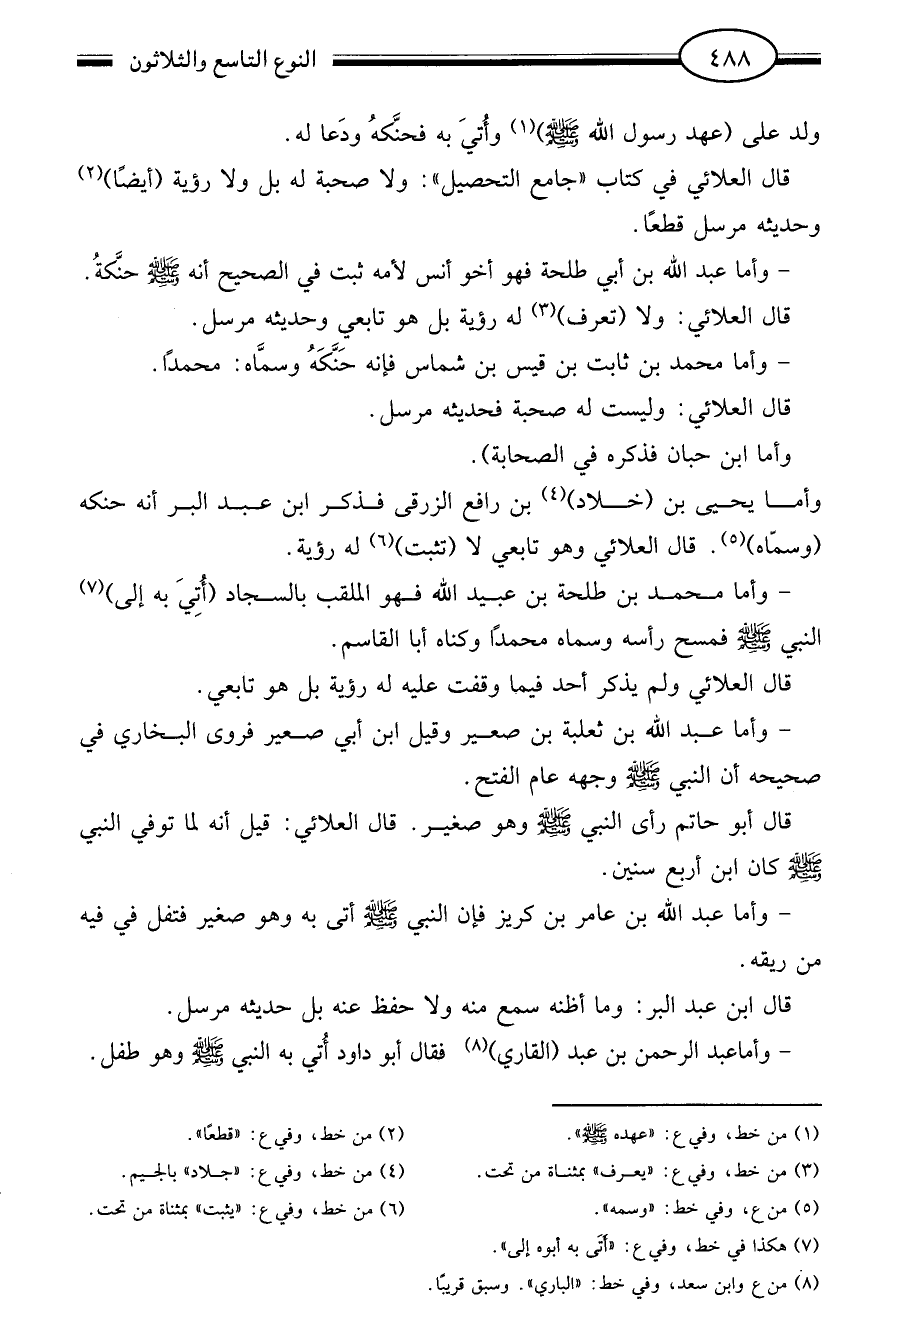 ٤٨٨
النوع التاسع والثلاثون
ولد على (عهد رسول الله ﷺ)(١) وأُتيَ به فحنَّكهُ ودَعا له.
قال العلائي في كتاب «جامع التحصيل»: ولا صحبة له بل ولا رؤية (أيضًا)(٢)
وحديثه مرسل قطعًا.
– وأما عبد الله بن أبي طلحة فهو أخو أنس لأمه ثبت في الصحيح أنه ﷺ حنَّكةُ.
قال العلائي: ولا (تعرف)(٣) له رؤية بل هو تابعي وحديثه مرسل.
– وأما محمد بن ثابت بن قيس بن شماس فإنه حَنَّكَهُ وسمَّاه: محمدًا.
قال العلائي: وليست له صحبة فحديثه مرسل.
وأما ابن حبان فذكره في الصحابة).
وأمـا يحـيى بن (خـلاد)(٤) بن رافع الزرقى فـذكـر ابن عبـد البـر أنه حنكه
(وسمّاه)(٥). قال العلائي وهو تابعي لا (تثبت)(٦) له رؤية.
– وأما محـمـد بن طلحة بن عبـيد الله فـهو الملقب بالسـجاد (أُتِيَ به إلى)(٧)
النبي ﷺ فمسح رأسه وسماه محمدًا وكناه أبا القاسم.
قال العلائي ولم يذكر أحد فيما وقفت عليه له رؤية بل هو تابعي.
– وأما عـبد الله بن ثعلبة بن صعـير وقيل ابن أبي صـعير فروى البـخاري في
صحيحه أن النبي ﷺ وجهه عام الفتح.
قال أبو حاتم رأى النبي ﷺ وهو صغيـر. قال العلائي: قيل أنه لما توفي النبي
ﷺ كان ابن أربع سنين.
– وأما عبد الله بن عامر بن كريز فإن النبي ﷺ أتى به وهو صغير فتفل في فيه
من ريقه.
قال ابن عبد البر: وما أظنه سمع منه ولا حفظ عنه بل حديثه مرسل.
– وأماعبد الرحمن بن عبد (القاري)(٨) فقال أبو داود أُتي به النبي ﷺ وهو طفل.
(١) من خط، وفي ع: «عهده ﷺ».
(٢) من خط، وفي ع: «قطعًا».
(٣) من خط، وفي ع: «يعرف» بمثناة من تحت.
(٤) من خط، وفي ع: «جلاد» بالجيم.
(٥) من ع، وفي خط: «وسمه».
(٦) من خط، وفي ع: «يثبت» بمثناة من تحت.
(٧) هكذا في خط، وفي ع: «أتَى به أبوه إلى».
(٨) من ع وابن سعد، وفي خط: «الباري». وسبق قريبًا.